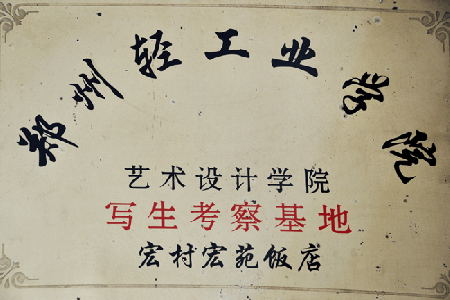 郑州轻工业学院
艺术设计学院
写生考察基地
宏村宏苑饭店